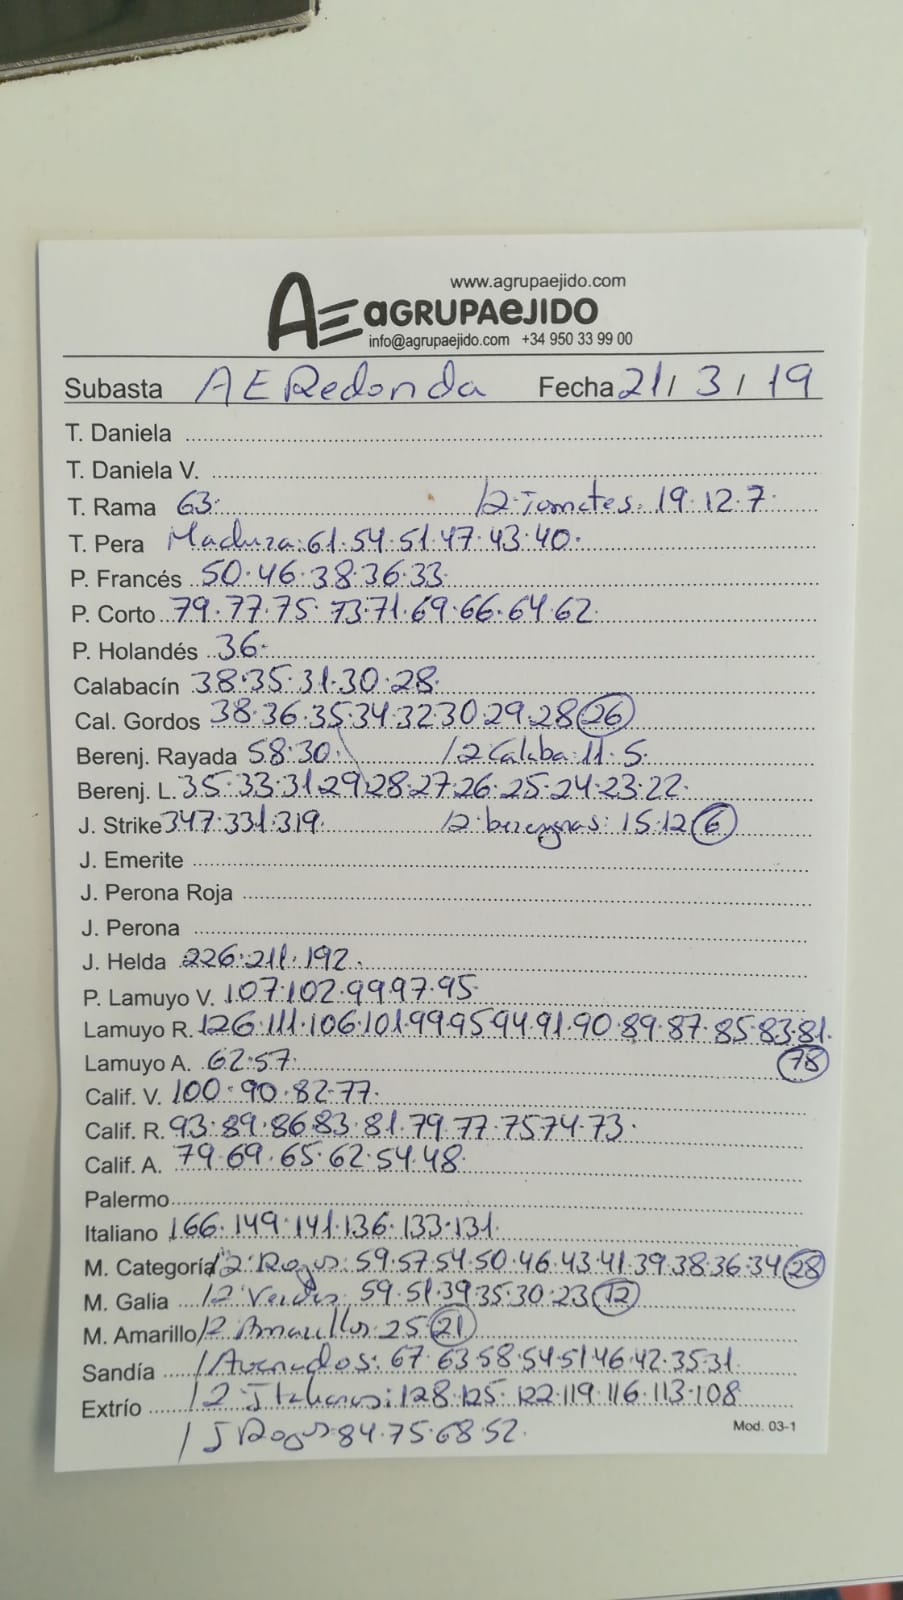 www.agrupaejido.com
AE aGRUPAeJIDO
info@agrupaejido.com +34 950 33 99 00
Subasta AE Redonda Fecha 21/3/19
T. Daniela
T. Daniela V.
T. Rama 63. /2 Tometes: 19.12.7.
T. Pera Madura: 61.54.51.47.43.40.
P. Francés 50.46.38.36.33.
P. Corto 79.77.75.73.71.69.66.64.62.
P. Holandés 36.
Calabacín 38.35.31.30.28.
Cal. Gordos 38.36.35.34.32.30.29.28 26
Berenj. Rayada 58.30. /2 Calaba: 11.5.
Berenj. L. 35.33.31.29.28.27.26.25.24.23.22.
J. Strike 347.331.319. /2 berengnas: 15.12 6
J. Emerite
J. Perona Roja
J. Perona
J. Helda 226.211.192.
P. Lamuyo V. 107.102.99.97.95.
Lamuyo R. 126.111.106.101.99.95.94.91.90.89.87.85.83.81.
Lamuyo A. 62.57. 78
Calif. V. 100.90.82.77.
Calif. R. 93.89.86.83.81.79.77.75.74.73.
Calif. A. 79.69.65.62.54.48.
Palermo
Italiano 166.149.141.136.133.131.
M. Categoría /2 Rojos: 59.57.54.50.46.43.41.39.38.36.34 28
M. Galia /2 Verdes 59.51.39.35.30.23 12
M. Amarillo /2 Amarillos 25 21
Sandía /Asurados: 67.63.58.54.51.46.42.35.31.
Extrío /2 Italianos: 128.125.122.119.116.113.108
/J Rojos 84.75.68.52.
Mod. 03-1